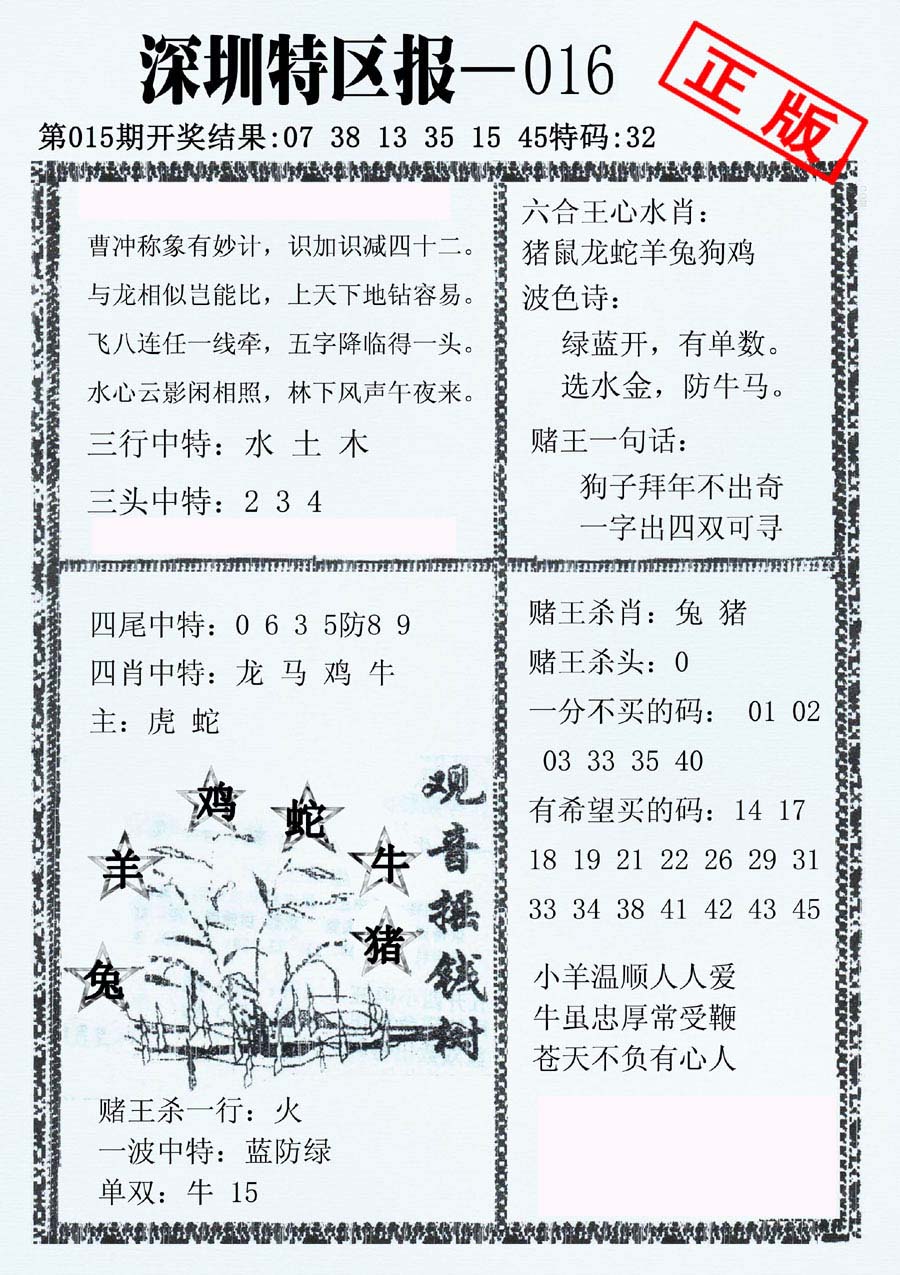 深圳特区报—016
正版
第015期开奖结果:07 38 13 35 15 45特码:32
曹冲称象有妙计，识加识减四十二。
与龙相似岂能比，上天下地钻容易。
飞八连任一线牵，五字降临得一头。
水心云影闲相照，林下风声午夜来。
三行中特：水 土 木
三头中特：2 3 4
六合王心水肖：
猪鼠龙蛇羊兔狗鸡
波色诗：
绿蓝开，有单数。
选水金，防牛马。
赌王一句话：
狗子拜年不出奇
一字出四双可寻
四尾中特：0 6 3 5防8 9
四肖中特：龙 马 鸡 牛
主：虎 蛇
鸡
蛇
羊
牛
猪
兔
观音摇钱树
赌王杀一行：火
一波中特：蓝防绿
单双：牛 15
赌王杀肖：兔 猪
赌王杀头：0
一分不买的码： 01 02
03 33 35 40
有希望买的码：14 17
18 19 21 22 26 29 31
33 34 38 41 42 43 45
小羊温顺人人爱
牛虽忠厚常受鞭
苍天不负有心人